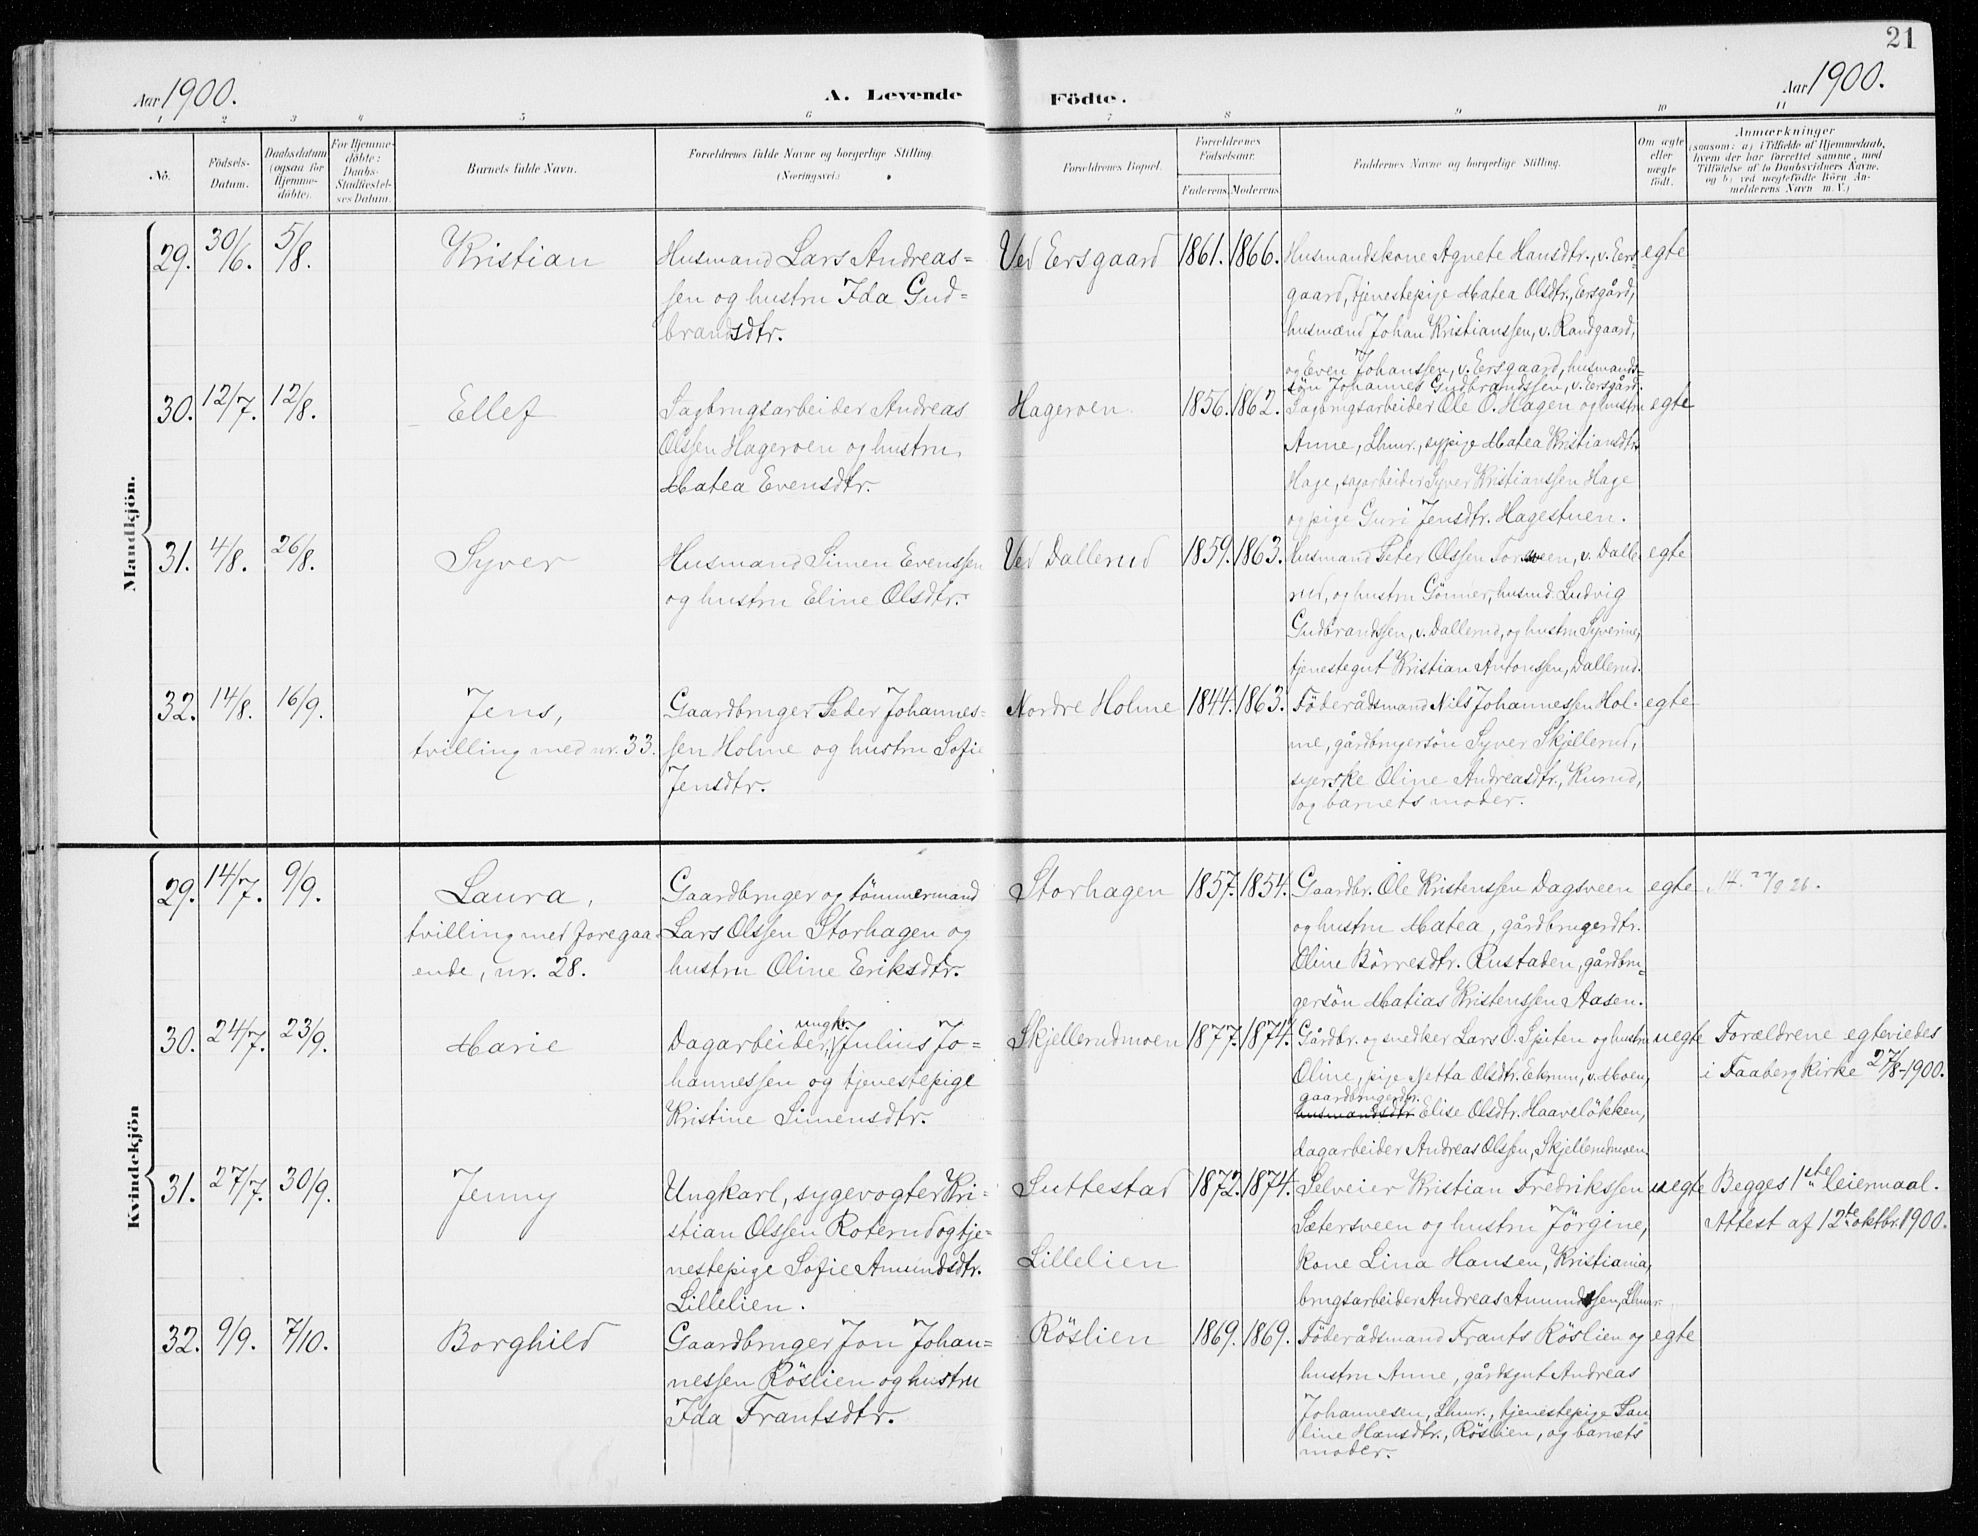 21
Aar 1900.
A. Levende Födte.
Aar 1900.
1 2 3 4 5 6 7 8 9 10 11
No.
Födsels-
Datum.
Daabsdatum
(ogsaa for
Hjemme-
döbte).
For Hjemme-
döbte:
Daabs-
Stadfæstel-
ses Datum.
Barnets fulde Navn.
Forældrenes fulde Navne og borgerlige Stilling.
(Næringsvei.)
Forældrenes Bopæl.
Forældrenes
Födselsaar.
Faderens. Moderens.
Faddernes Navne og borgerlige Stilling.
Om ægte
eller
uægte
födt.
Anmærkninger
(saasom: a) i Tilfælde af Hjemmedaab,
hvem der har forrettet samme, med
Tilföielse af to Daabsvidners Navne,
og b) ved uægtefödte Börn An-
melderens Navn m. V.)
Mandkjön.
29. 30/6. 5/8.
Kristian
Husmand Lars Andreas-
sen og hustru Ida Gud-
brandsdtr.
Ved Ersgaard
1861. 1866.
Husmandskone Agnete Hansdtr., v. Ers-
gaard, tjenestepije Matea Olsdtr., Ersgård,
husmænd Johan Kristianssen, v. Randgaard,
og Even Johanssen, v. Ersgaard, husmands-
sön Johannes Gudbrandssen, v. Ersgård.
egte
30. 12/7. 12/8.
Ellef
Sagbrugsarbeider Andreas
Olssen Hageroen og hustru
Matea Evensdtr.
Hageroen
1856. 1862.
Sagbrugsarbeider Ole O. Hagen og hustru
Anne, Lhmr., sypige Matea Kristiansdtr.
Hage, sagarbeider Syver Kristianssen Hage
og pige Guri Jensdtr. Hagestuen.
egte
31. 4/8. 26/8.
Syver
Husmand Simen Evenssen
og hustru Eline Olsdtr.
Ved Dallerud
1859. 1863.
Husmand Peter Olssen, v. Dalle-
rud, og hustru Gönner, husmd. Ludvig
Gudbrandssen, v. Dallerud, og hustru Syverine,
tjenestegut Kristian Antonssen, Dallerud.
egte
32. 14/8. 16/9.
Jens,
tvilling med nr. 33.
Gaardbruger Peder Johannes-
sen Holme og hustru Sofie
Jensdtr.
Nordre Holme
1844. 1863.
Föderådsmand Nils Johannessen Hol-
me, gårdbrugersön Syver Skjellerud,
syerske Oline Andreasdtr., Kurud,
og barnets moder.
egte
Kvindekjön
29. 14/7. 9/9.
Laura,
tvilling med foregaa-
ende, nr. 28.
Gaardbruger og tömmermand
Lars Olssen Storhagen og
hustru Oline Eriksdtr.
Storhagen
1857. 1854.
Gaardbr. Ole Kristenssen Dagsveen
og hustru Matea, gårdbrugerdtr.
Oline Börresdtr. Rustaden, gårdbru-
gersön Matias Kristenssen Aasen.
egte
30. 24/7. 23/9.
Marie
Dagarbeider, ungk. Julius Jo-
hannessen og tjenestepige
Kristine Simensdtr.
Skjellerudmoen
1877. 1874.
Gårdbr. og snedker Lars O. Spiten og hustru
Oline, pige Netta Olsdtr. Ekrum, v. Moen,
gaardbrugerdtr.
husmandsdtr. Elise Olsdtr. Haavelökken,
dagarbeider Andreas Olssen, Skjellerudmoen.
uegte
Forældrene egteviedes
i Faaberg kirke 27/8-1900.
31. 27/7. 30/9.
Jenny
Ungkarl, sygevogter Kri-
stian Olssen Roterud og tje-
nestepige Sofie Amundsdtr.
Lillelien.
Suttestad
Lillelien
1872. 1874.
Selveier Kristian Fredrikssen
Sætersveen og hustru Jörgine,
kone Lina Hansen, Kristiania,
brugsarbeider Andreas Amundssen, Lhmr.
uegte
Begges 1ste leiermaal.
Attest af 12te oktbr. 1900.
32. 9/9. 7/10.
Borghild
Gaardbruger Jon Johan-
nessen Röslien og hustru
Ida Frantsdtr.
Röslien
1869. 1869.
Föderådsmand Frants Röslien og
hustru Anne, gårdsgut Andreas
Johannesen, Lhmr., tjenestepige Pau-
line Hansdtr., Röslien, og barnets
moder.
egte